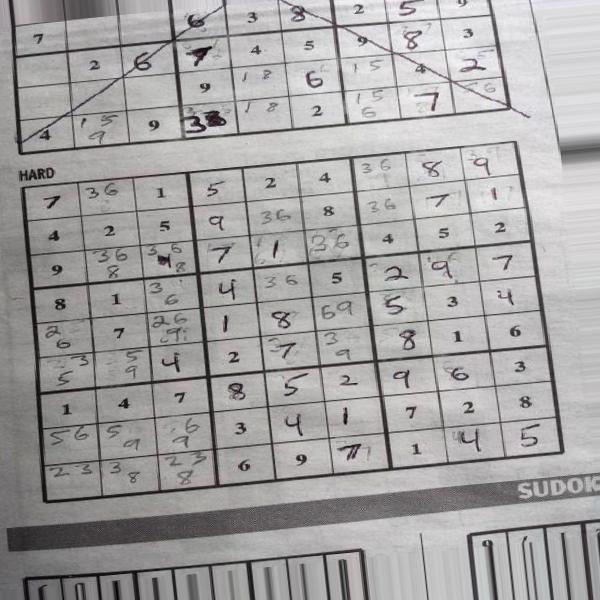 6 3 8 2 5 9
7 7 4 5 9 8 3
2 6 9 1 8 6 1 5 4 2
4 1 5 9 9 3 1 8 2 1 5 6 7 6
HARD
7 3 6 1 5 2 4 3 6 8 9
4 2 5 9 3 6 8 3 6 7 1
9 3 6 8 3 6 8 7 1 3 6 4 5 2
8 1 3 6 4 3 6 5 2 9 7
2 6 7 2 6 9 1 8 6 9 5 3 4
5 3 5 9 4 2 7 3 9 8 1 6
1 4 7 8 5 2 9 6 3
5 6 5 9 6 9 3 4 1 7 2 8
2 3 3 8 2 3 8 6 9 7 1 4 5
SUDOK